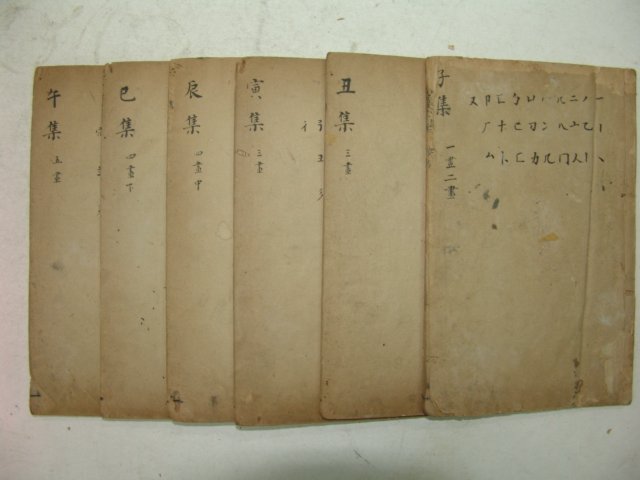 子集
一畫二畫
一丨丶
丿乙亅
二亠人
儿入八冂
冖冫几
凵刀力
勹匕匚
匸十卜
卩厂厶
又
丑集
三畫
寅集
三畫
辰集
四畫中
巳集
四畫下
午集
五畫